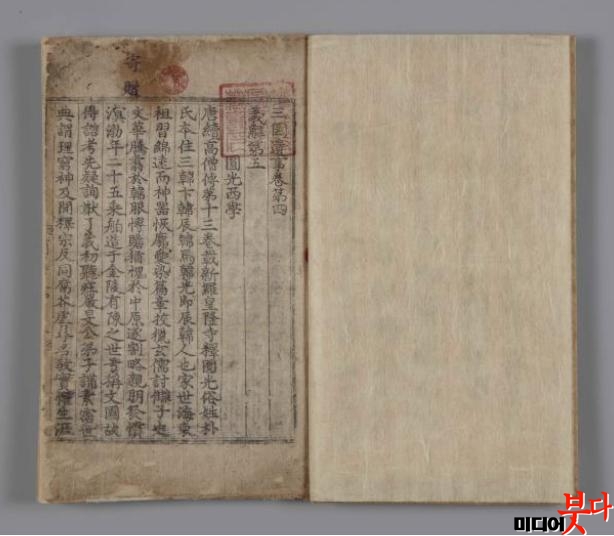 寄贈
三國遺事卷第四
義解第五
圓光西學
唐續高僧傳第十三卷載新羅皇隆寺釋圓光俗姓朴
氏本住三韓卞韓辰韓馬韓光即辰韓人也家世海東
祖習綿遠而神器恢廓愛染篇章挍獵玄儒討讎子史
文華騰翥於韓服博贍猶愧於中原遂割略親朋發憤
溟渤年二十五乘舶造于金陵有陳之世号稱文國故
得諮考先疑詢猷了義初聽莊嚴旻公弟子講素霑世
典謂理窮神及聞釋宗反同腐芥虛尋名教實懼生涯
미디어붓다